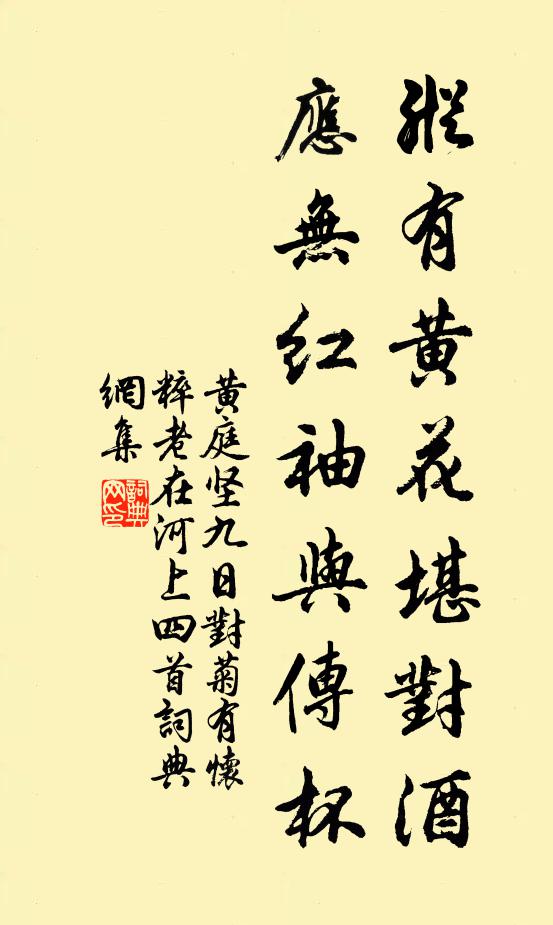 縱有黃花堪對酒
應無红袖與傳杯
黄庭坚九日對菊有懷
粹老在河上四首詞典
網集
詞典網印